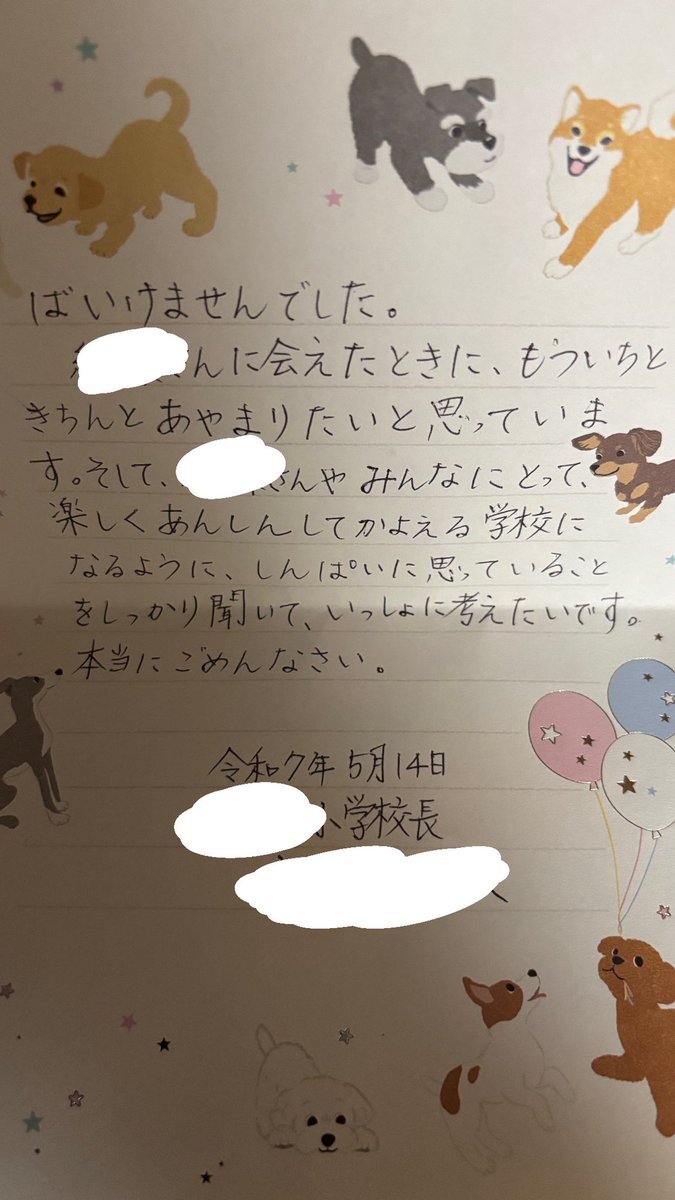 ばいけませんでした。
んに会えたときに、もういちど
きちんとあやまりたいと思っていま
す。そして、さんやみんなにとって、
楽しくあんしんしてかよえる学校に
なるように、しんぱいに思っていること
をしっかり聞いて、いっしょに考えたいです。
本当にごめんなさい。
令和7年5月14日
小学校長